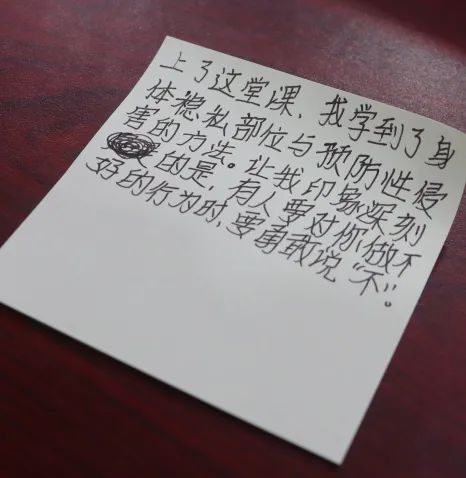 上了这堂课，我学到了身
体稳私部位与预防性侵
害的方法。让我印象深刻
的是，有人要对你做不
好的行为时，要勇敢说“不”。